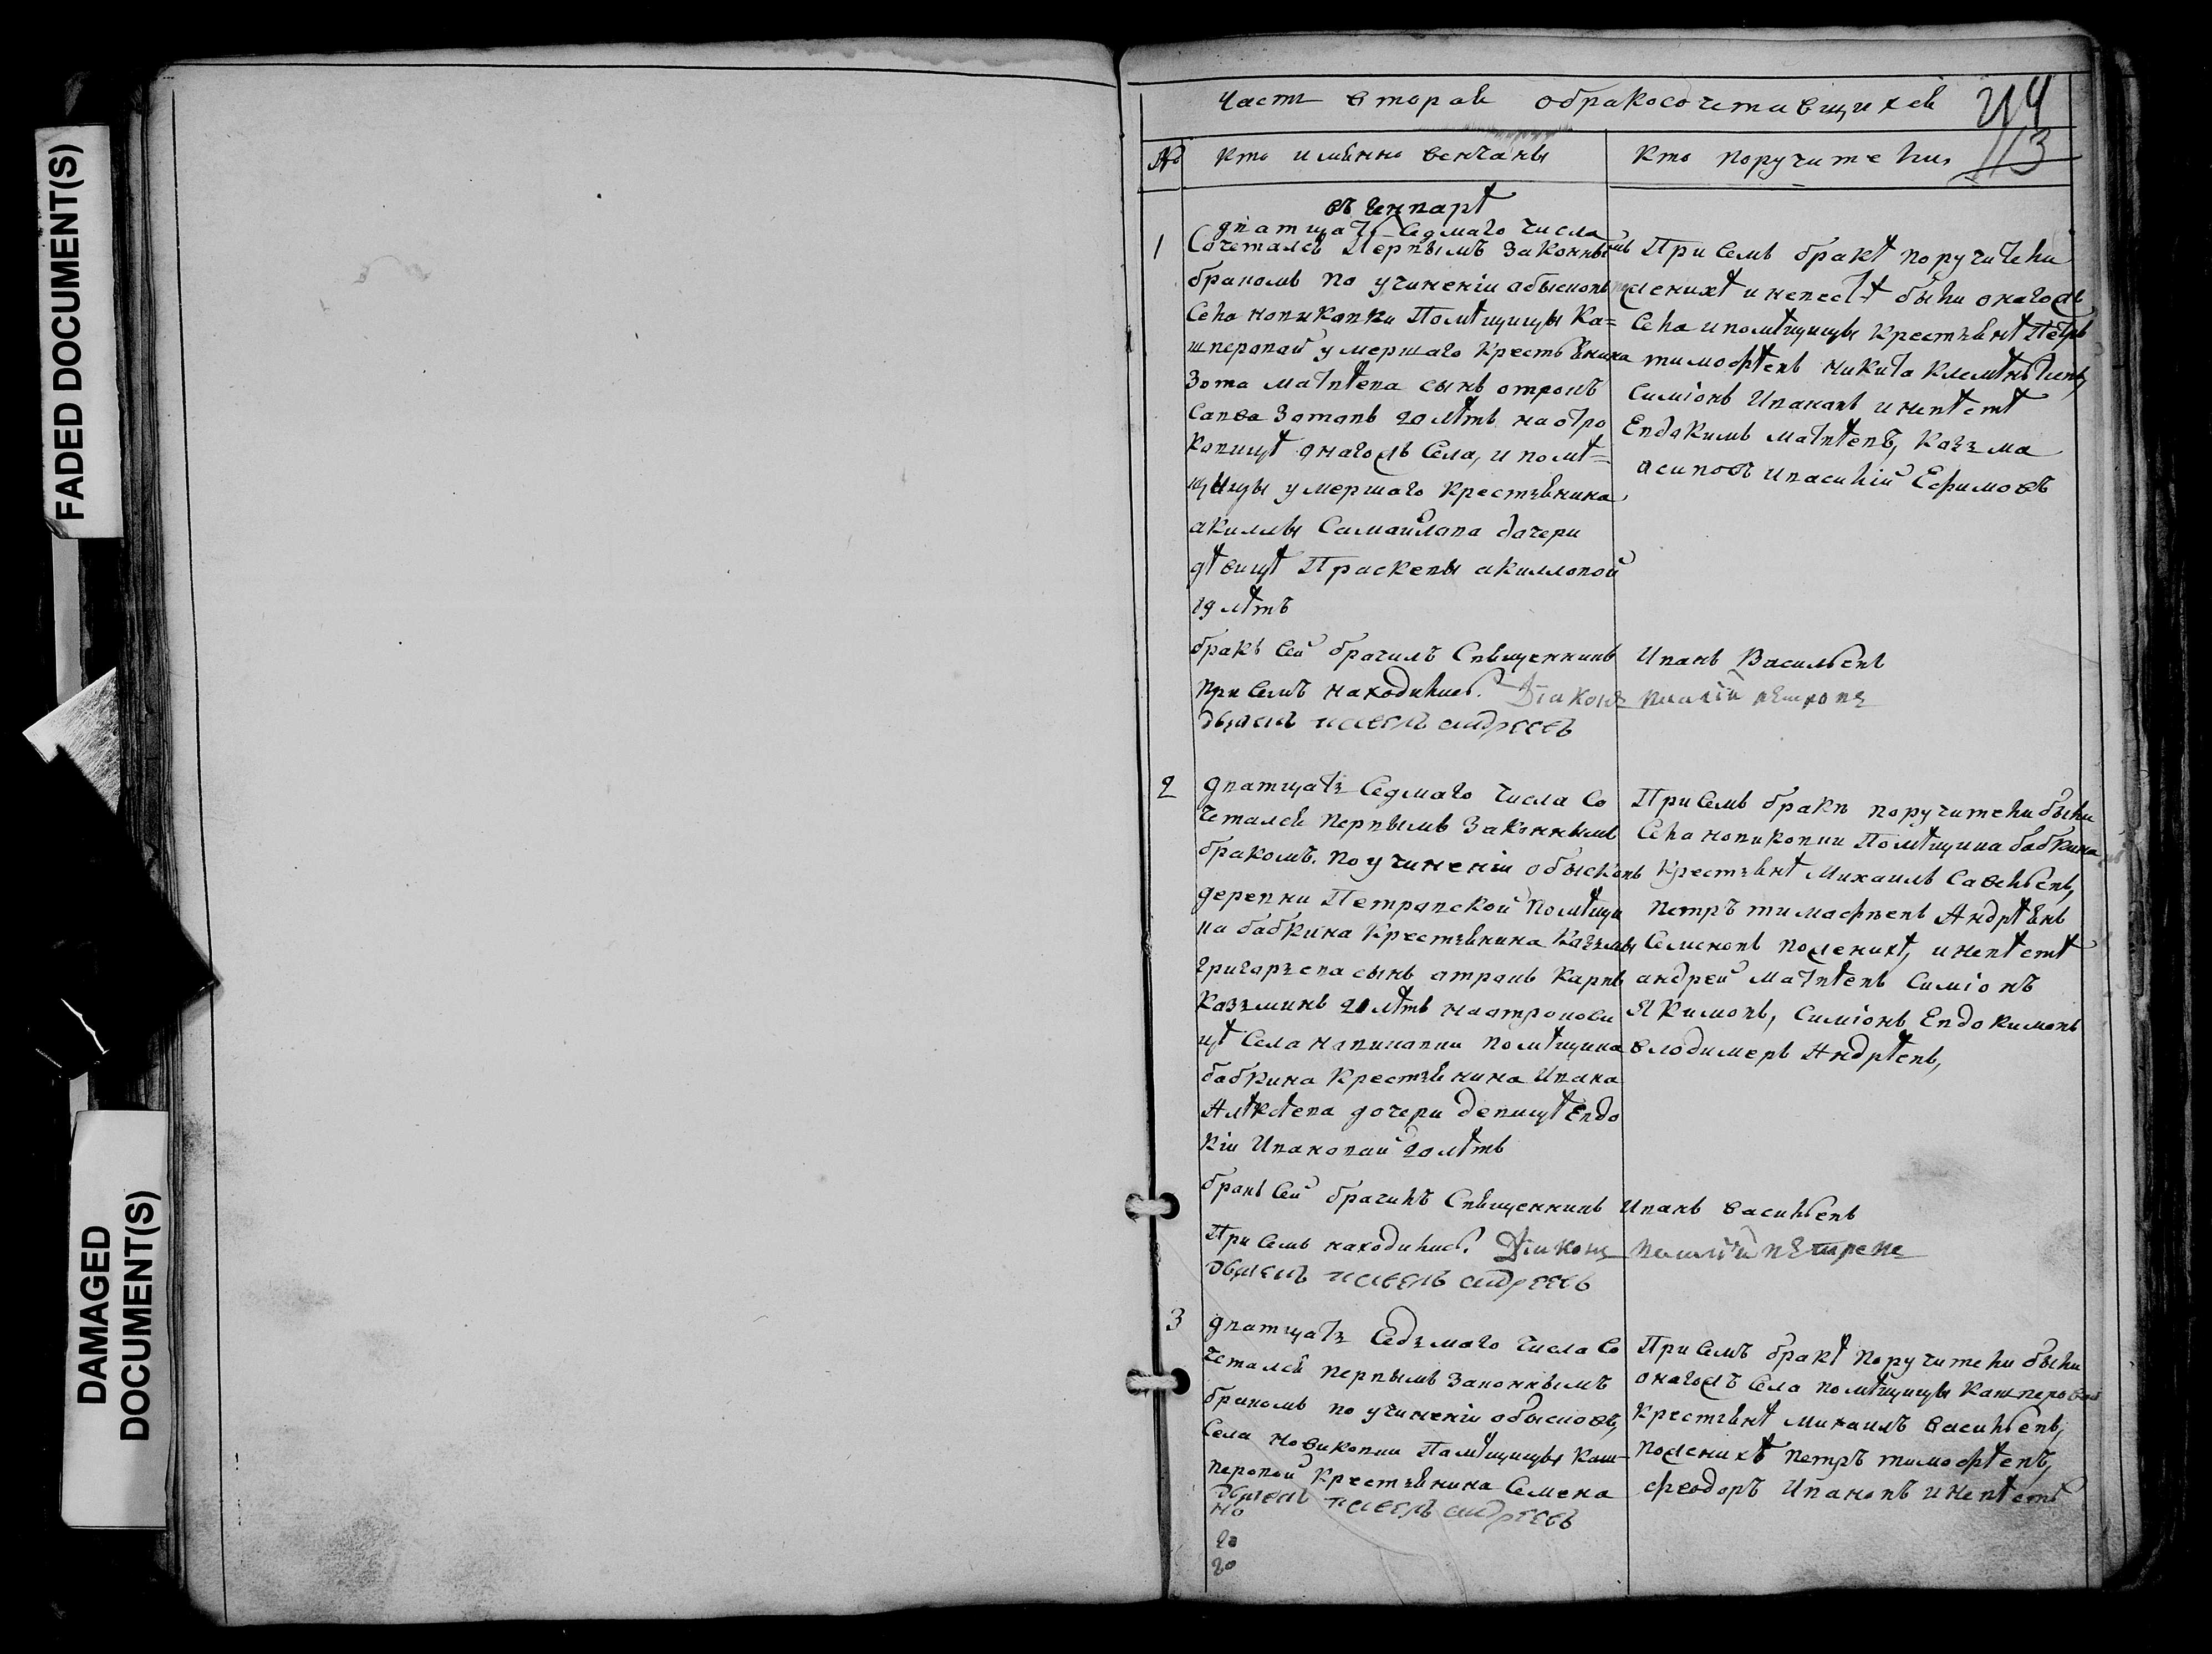 FADED DOCUMENT(S)
DAMAGED
DOCUMENT(S)
Часть вторая обракосочетавщихся
113
№ Кто имянно венчаны
Кто поручители
въ генварѣ
дватцать Седмаго числа
1 Сочетался Первымъ Законнымъ
бракомъ по учиненіи обысковъ
Села новиковки Помѣщицы Ка=
шперовой умершаго Крестьянина
Зота Матвѣева сынъ отрокъ
Савва Зотовъ 20 лѣтъ на отро
ковицѣ онагожъ Села, и помѣ=
щицы умершаго Крестьянина
акиллы Самайлова дочери
дѣвицѣ Прасковьи акилловой
19 лѣтъ
При Семъ бракѣ поручители
по женихѣ и невестѣ были онагожъ
Села и помѣщицы Крестьянѣ Петръ
тимофѣевъ никита Клементьевъ,
Симіонъ Ивановъ и невѣстѣ
Евдокимъ Матвѣевъ, Козьма
асиповъ и василій Ефимовъ
бракъ Сей брачилъ Священникъ Иванъ Васильевъ
При Семъ находились. Діаконъ петровъ
дьячекъ павелъ андреевъ
2 дватцать Седмаго числа Со
четался первымъ Законнымъ
бракомъ. по учиненіи обысковъ
деревни Петравской помѣщи
ка бабкина Крестьянина Казьмы
григорьева сынъ отрокъ Карпъ
Казьминъ 20 лѣтъ на отрокови
цѣ Села навиковки помѣщика
бабкина Крестьянина Ивана
Алѣксѣева дочери девицѣ Евдо
кіи Ивановай 20 лѣтъ
При Семъ бракѣ поручители были
Села новиковки Помѣщика бабкина
Крестьянѣ Михаилъ Савельевъ,
петръ тимафѣевъ Андрѣянъ
Семеновъ по женихѣ, и невѣстѣ
андрей Матвѣевъ Симіонъ
Якимовъ, Симіонъ Евдокимовъ
володимеръ Андрѣевъ,
бракъ Сей брачилъ Священникъ Иванъ васильевъ
При Семъ находились. Діаконъ петровъ
дьячекъ павелъ андреевъ
3 дватцать Седьмаго числа Со
четался первымъ Законнымъ
бракомъ по учиненіи обысковъ,
Села новиковки Памѣщицы Каш-
перовой Крестьянина Семена
При Семъ бракѣ поручители были
онагожъ Села помѣщицы Кашперовой
Крестьянѣ Михаилъ васильевъ,
по женихѣ петръ тимофѣевъ,
феодоръ Ивановъ и невѣстѣ
дьячекъ павелъ андреевъ
но
20
20